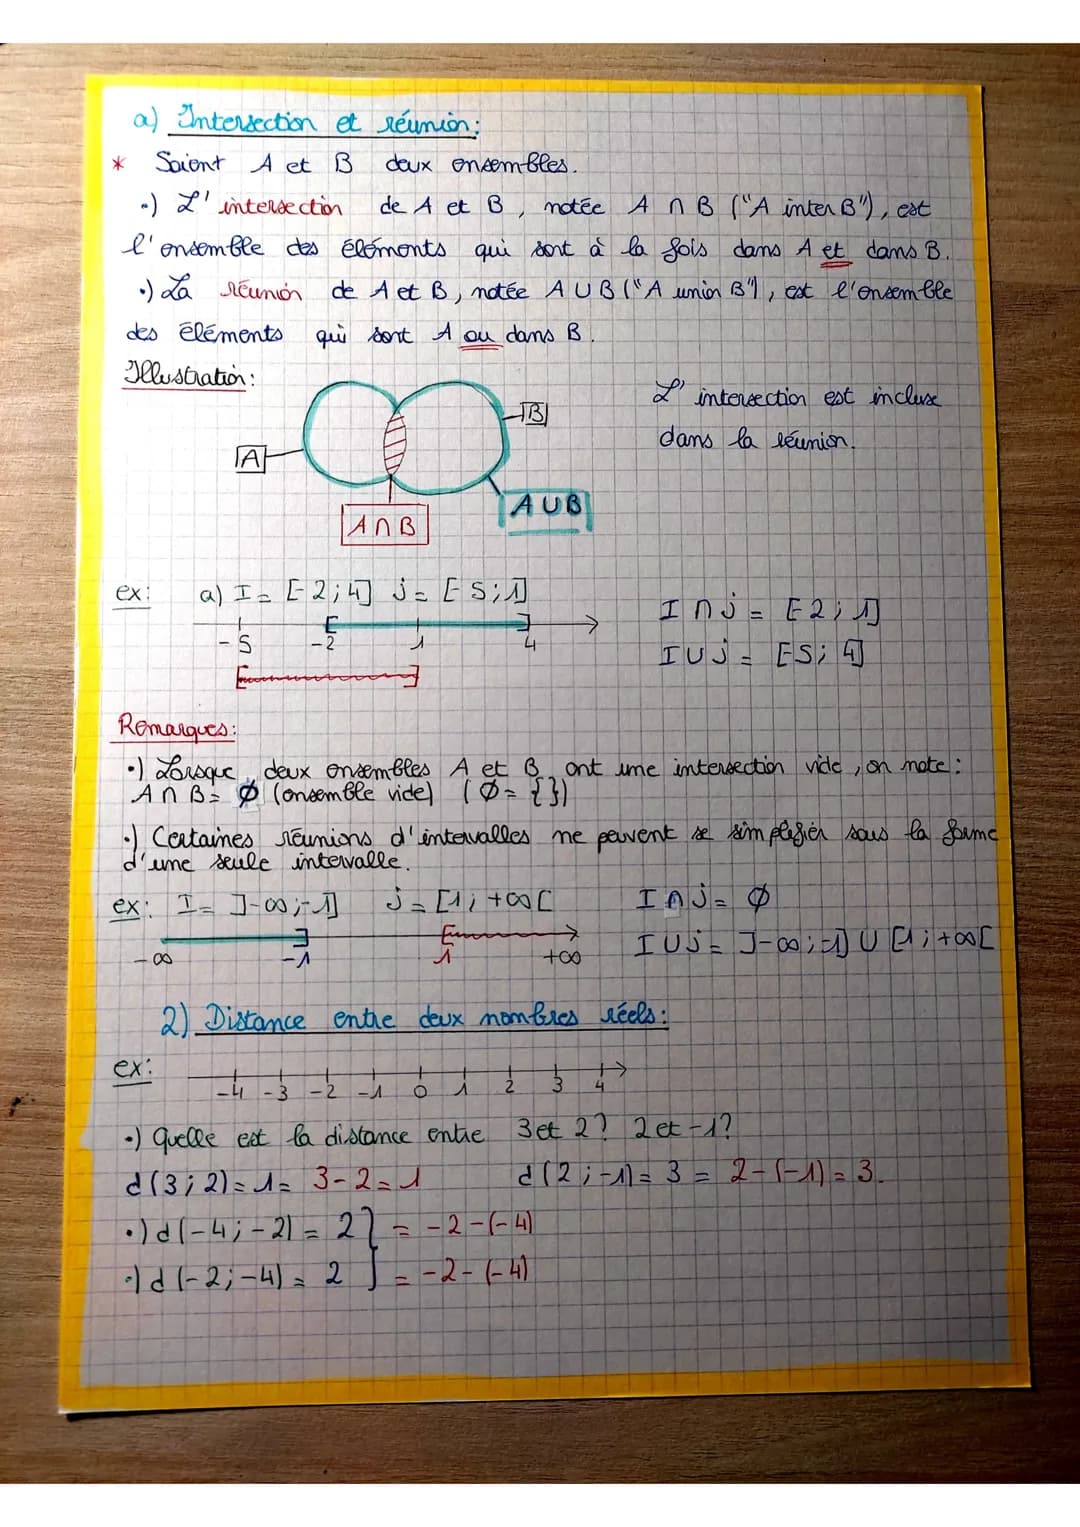 a) Intersection et réunion:
* Soient A et B deux ensembles.
•) L'intersection de A et B, notée A ∩ B ("A inter B"), est
l'ensemble des éléments qui sont à la fois dans A et dans B.
•) La réunion de A et B, notée A ∪ B ("A union B"), est l'ensemble
des éléments qui sont A ou dans B.
Illustration:
L'intersection est incluse
dans la réunion.
B
A
A ∪ B
A ∩ B
ex: a) I = [-2;4] j = [-5;1]
I ∩ j = [-2;1]
-5 -2 1 4
I ∪ j = [-5;4]
Remarques:
•) Lorsque deux ensembles A et B ont une intersection vide, on note:
A ∩ B = Ø (ensemble vide) (Ø = { })
•) Certaines réunions d'intervalles ne peuvent se simplifier sous la forme
d'une seule intervalle.
ex: I = ]-∞;-1] j = [1;+∞[ I ∩ j = Ø
-∞ -1 1 +∞
I ∪ j = ]-∞;-1] ∪ [1;+∞[
2) Distance entre deux nombres réels:
ex:
-4 -3 -2 -1 0 1 2 3 4
•) Quelle est la distance entre 3 et 2? 2 et -1?
d(3;2) = 1 = 3-2 = 1 d(2;-1) = 3 = 2-(-1) = 3.
•) d(-4;-2) = 2 } = -2-(-4)
•) d(-2;-4) = 2 } = -2-(-4)